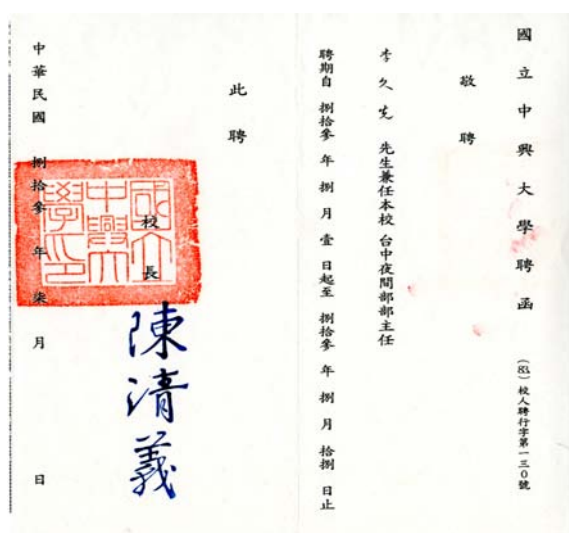 國立中興大學聘函
(83)校人聘行字第一三0號
敬聘
李久先 先生兼任本校台中夜間部部主任
聘期自捌拾參年捌月壹日起至捌拾參年捌月拾捌日止
此聘
校長 陳清義
國立中興大學印
中華民國捌拾參年柒月 日